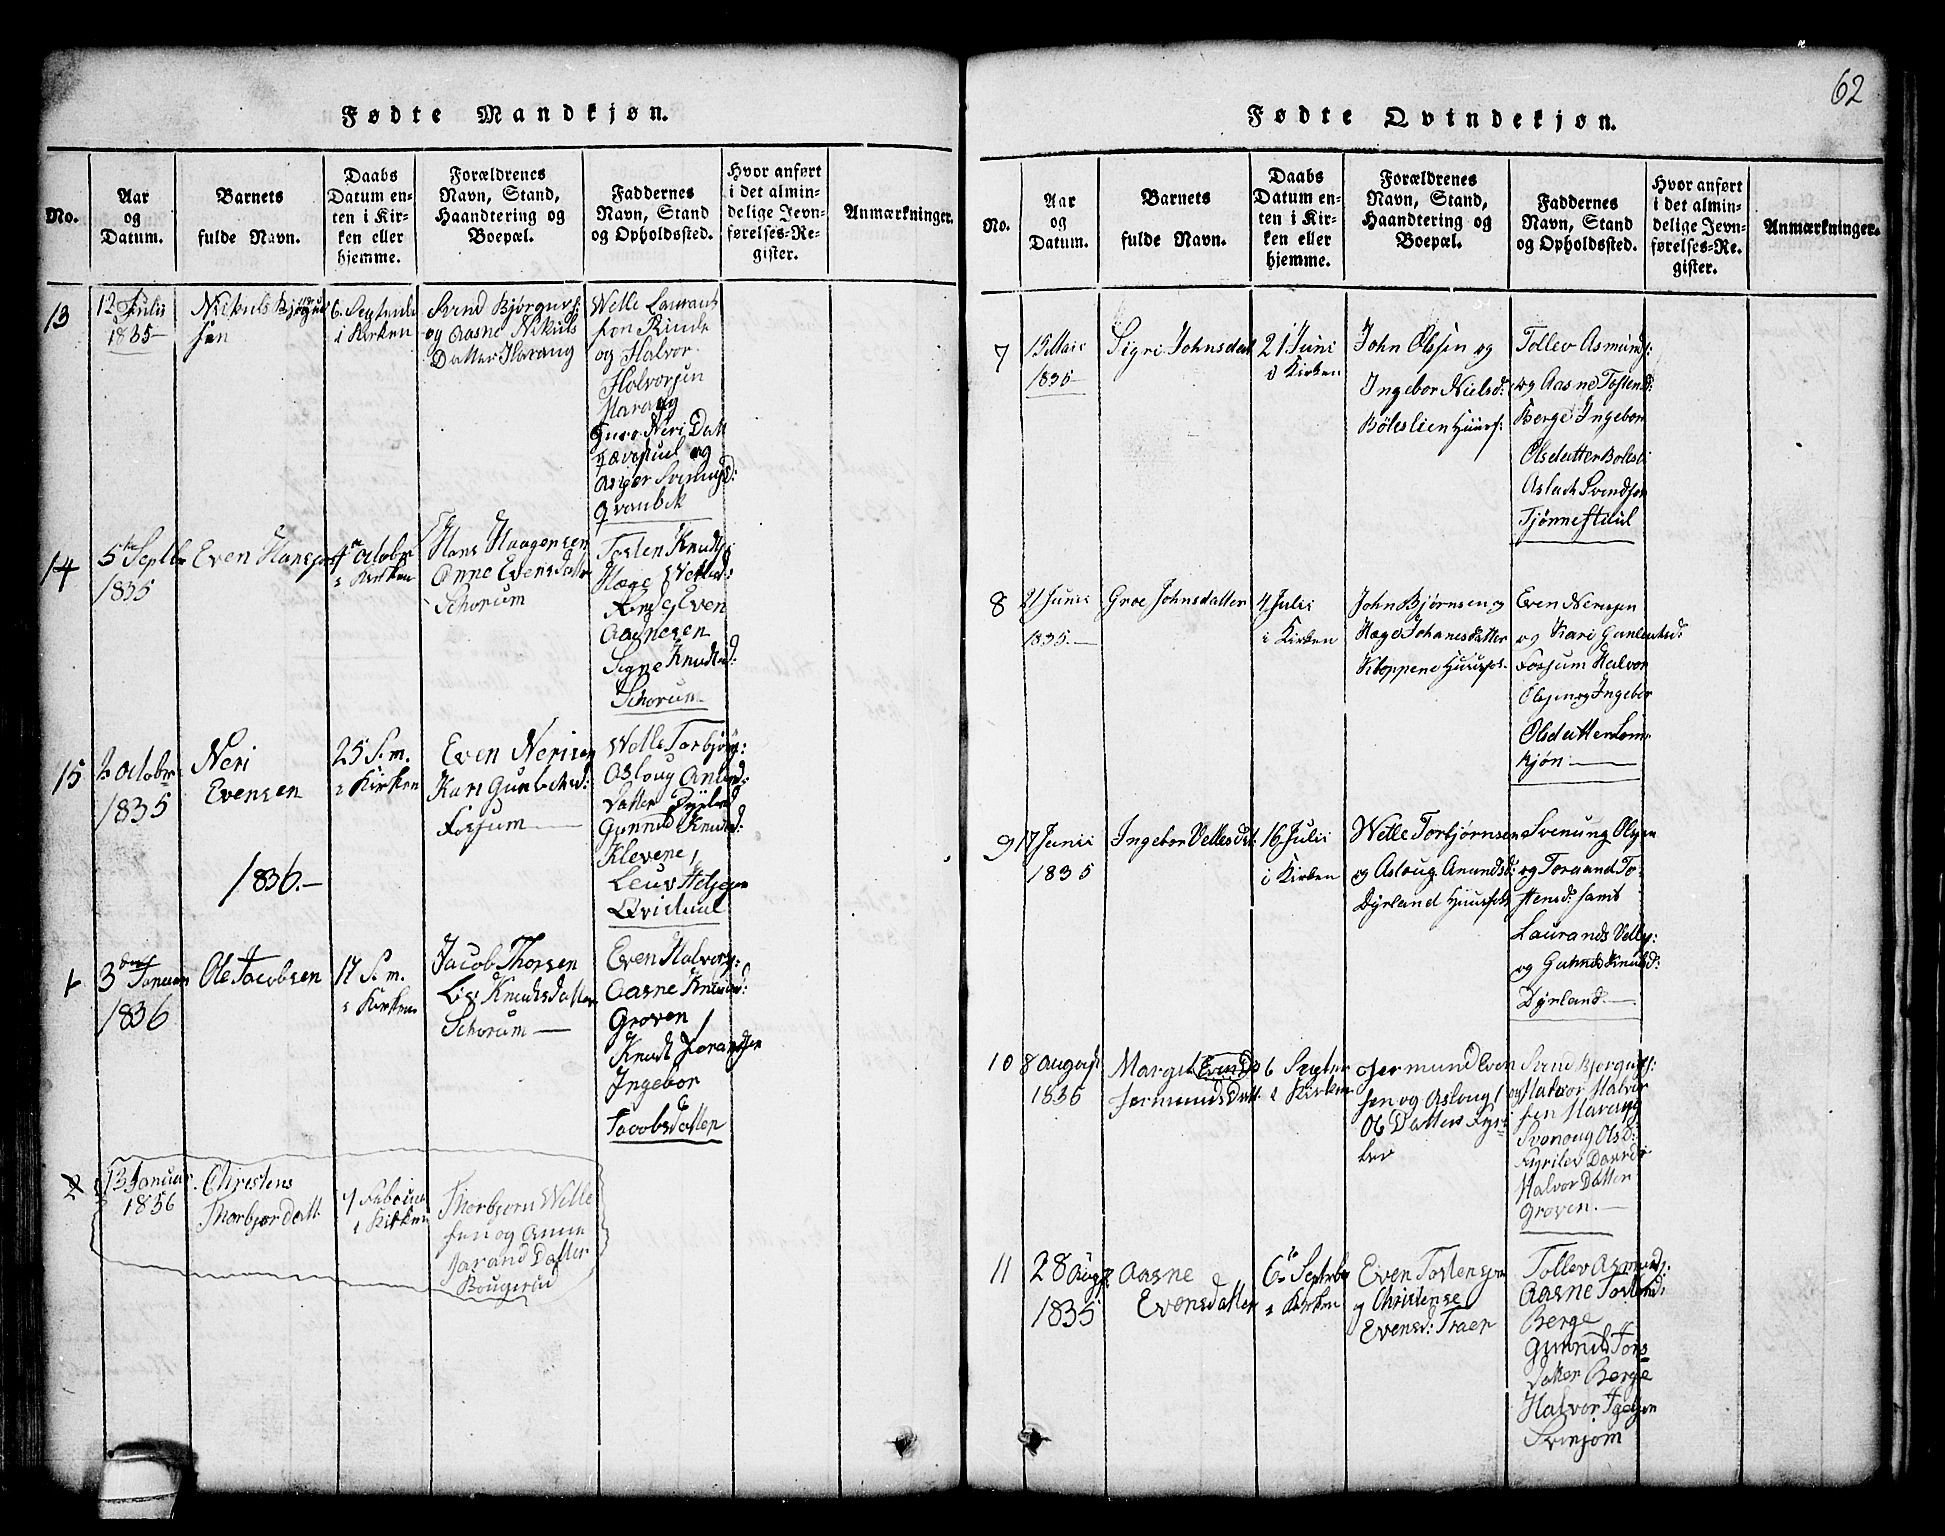 62
Fødte Mandkjøn.
No.
Aar
og
Datum.
Barnets
fulde Navn.
Daabs
Datum en-
ten i Kir-
ken eller
hjemme.
Forældrenes
Navn, Stand,
Haandtering og
Boepæl.
Faddernes
Navn, Stand
og Opholdssted.
Hvor anført
i det almin-
delige Jevn-
førelses-Re-
gister.
Anmærkninger.
13
12 Julii
1835
sen
6 Septembr
i Kirken
Svend Bjørgufs:
og Aasne Nikuls
Datter Harang
Welle Laurant
sen Rinde
og Halvor
Halvorsen
Harang
Guro Neri Datt
og
Qvanbek
14
5te Septbr
1835
Even Hansen
4de Octobr
i Kirken
Hans Haagensen
Anne Evens Datter
Schorum
Tosten Knuds:
Hæge
Even
Aasnesen
Signe Knudsd:
Schorum
15
2 Octobr
1835
Neri
Evensen
25 S. m.
i Kirken
Even Nerisen
Kari Gunleiksd:
Forsjum
Welle Torbjørs:
Aslaug Anund:
Datter Dyrland
Gunnild Knudsd:
Klevene,
Qvistaul
1836.
1
3 Januar
1836
Ole Jacobsen
17 S. m.
i Kirken
Jacob Thorsen
Liv Knudsdatter
Schorum
Even Halvors:
Aasne Knudsd:
Groven
Knudt
Ingebor
Jacobsdatter
2
13 Januar
1836
Christens
Thorbjør Datt.
7 Februar
i Kirken
Thorbjorn Welle
sen og Anne
Jarand Datter
Bougerud
Fødte Qvindekjøn.
No.
Aar
og
Datum.
Barnets
fulde Navn.
Daabs
Datum en-
ten i Kir-
ken eller
hjemme.
Forældrenes
Navn, Stand,
Haandtering og
Boepæl.
Faddernes
Navn, Stand
og Opholdssted.
Hvor anført
i det almin-
delige Jevn-
førelses-Re-
gister.
Anmærkninger.
7
15 Maii
1835
Sigri Johnsdat
21 Juni
i Kirken
John Olssen og
Ingebor Nielsd:
Böleslien Huusf:
Tollev Asmunds:
og Aasne Tostend:
Berge Ingebor
Olsdatter Bolesli
Aslach Svendsen
Tjønnestuul
8
21 Junii
1835.
Groe Johnsdatter
4 Julii
i Kirken
John Bjørnsen og
Hæge Johanesdatter
Kloppene Huusfol.
Even Nerisen
og Kari Gunleiksd:
Forsjum Halvor
Olsen og Ingebor
Olsdatter Lom-
kjøn.
9
17 Junii
1835
Ingebor Vellesdat:
16 Julii
i Kirken
Welle Torbjørnsen
og Aslaug Anundsd:
Dyrland Huusfolk
Svenung Olsen
og Toraand To-
stensd: samt
Laurands Velles:
og Gunild Knudsd:
Dyrland.
10
8 August
1835
Margit
Jermunds Datt.
6 Septbr
i Kirken
Jermund Even
sen og Aslaug
Ols Datter Fyri
lev
Svend Bjørgufs:
og Halvor Halvor
sen Harang
Svenoug Olsd:
Fyrilev
Halvor Datter
Groven.
11
28 Augs.
1835
Aasne
Evensdatter
6te Septbr
i Kirken
Even Tostensen
og Christense
Evensd: Traen
Tollev Asmunds:
Aasne Tostend:
Berge
Gunnild Tors
Datter Berge
Halvor
Svinjom